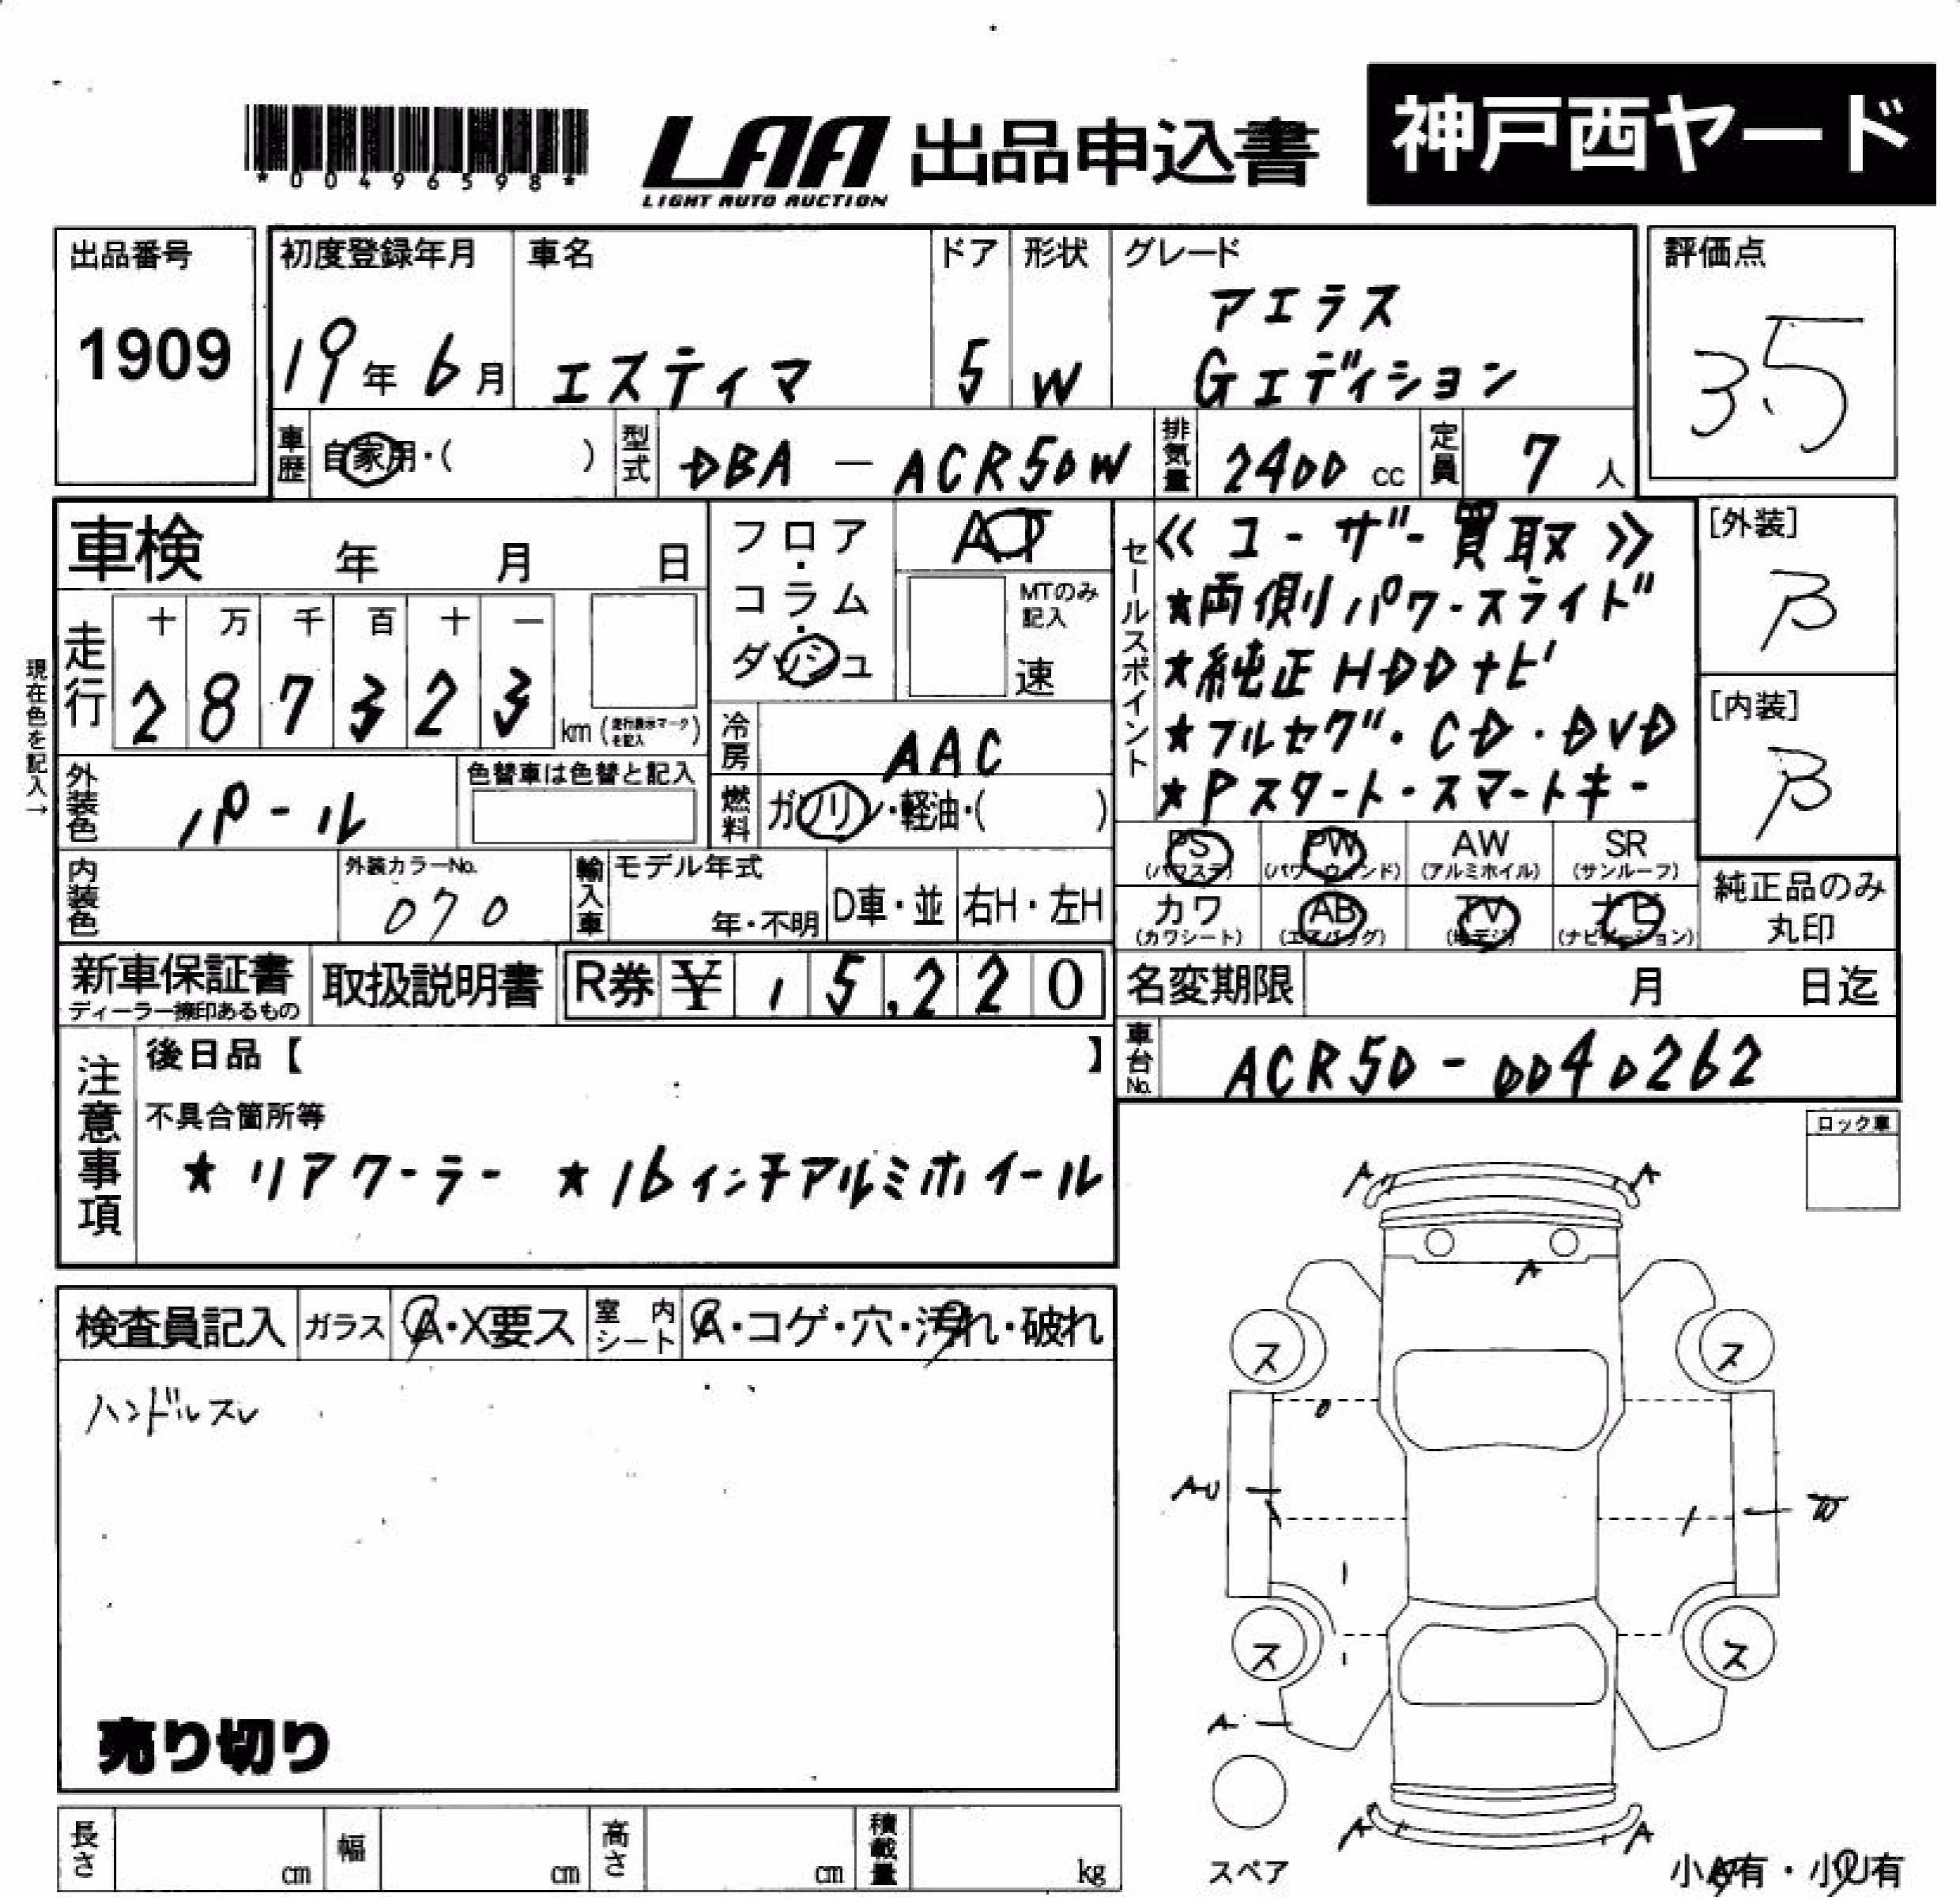 *00496598*
LAA 出品申込書
LIGHT AUTO AUCTION
神戸西ヤード
出品番号
1909
初度登録年月
19年6月
車名
エスティマ
ドア
5
形状
W
グレード
アエラス
Gエディション
評価点
3.5
車歴
自家用・( )
型式
DBA - ACR50W
排気量
2400 cc
定員
7人
車検 年 月 日
フロア・コラム・ダッシュ
AT
MTのみ記入
速
セールスポイント
≪ユーザー買取≫
★両側パワースライド
★純正HDDナビ
★フルセグ・CD・DVD
★Pスタート・スマートキー
[外装]
B
[内装]
B
現在色を記入→
走行
十 万 千 百 十 一
2 8 7 3 2 3
km (走行表示マークを記入)
冷房
AAC
外装色
パール
色替車は色替と記入
燃料
ガソリン・軽油・( )
内装色
外装カラーNo.
070
輸入車
モデル年式
年・不明
D車・並
右H・左H
PS
(パワステ)
PW
(パワーウィンド)
AW
(アルミホイル)
SR
(サンルーフ)
カワ
(カワシート)
AB
(エアバッグ)
TV
(地デジ)
ナビ
(ナビゲーション)
純正品のみ
丸印
新車保証書
ディーラー捺印あるもの
取扱説明書
R券 ¥ 15,220
名変期限 月 日迄
車台No.
ACR50-0040262
注意事項
後日品【 】
不具合箇所等
★リアクーラー ★16インチアルミホイール
ロック車
検査員記入
ガラス
A・X要ス
室内シート
A・コゲ・穴・汚れ・破れ
ハンドルスレ
売り切り
A A
A
ス ス
AU
ス ス
A
A A
スペア
小A有・小U有
長さ cm
幅 cm
高さ cm
積載量 kg